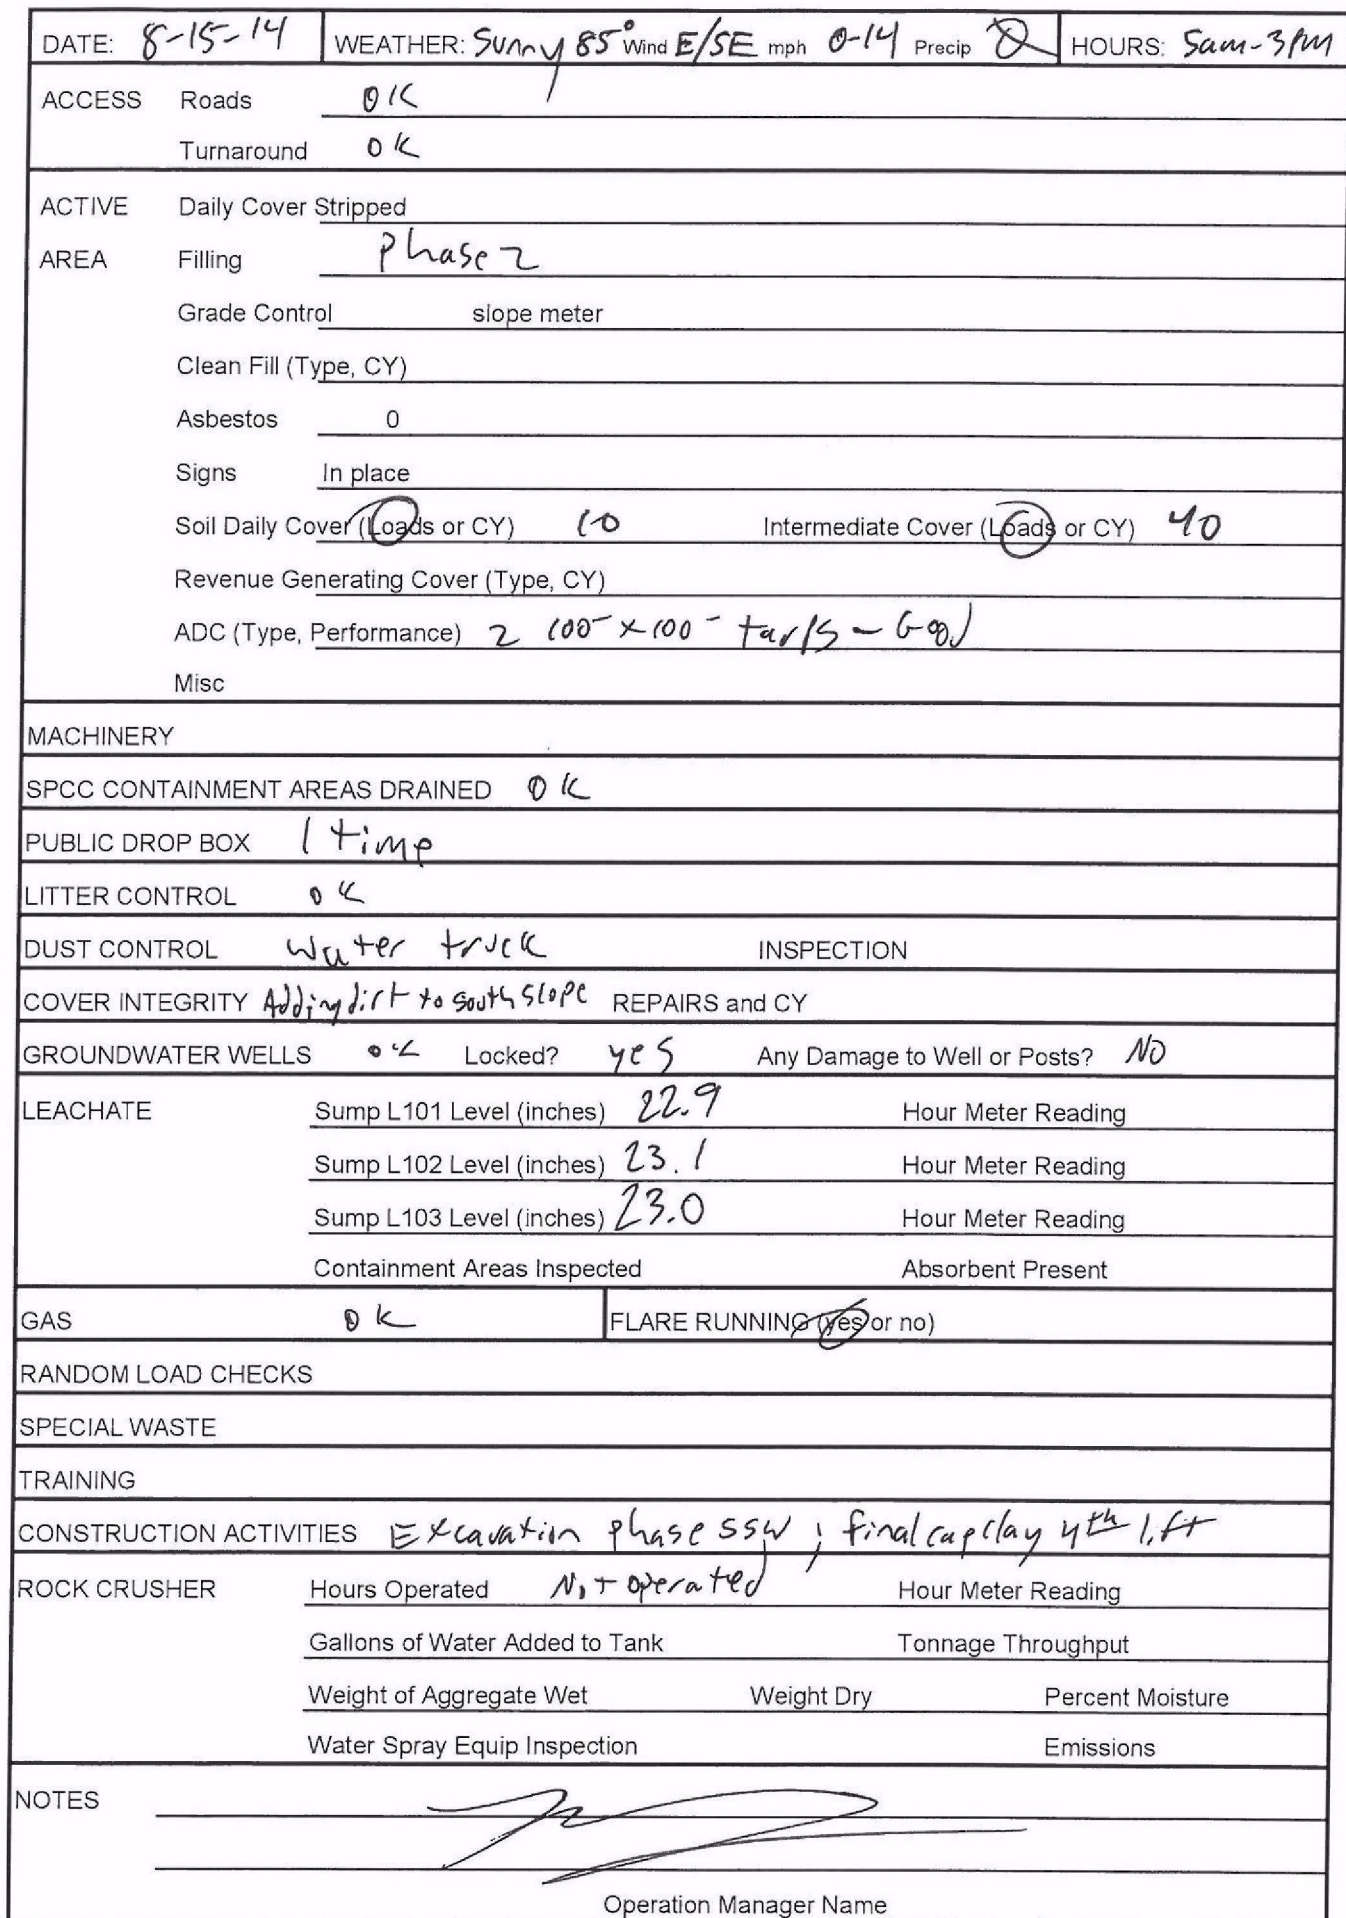 DATE: 8-15-14 WEATHER: Sunny 85° Wind E/SE mph 0-14 Precip 0 HOURS: 5am-3PM
ACCESS Roads OK
Turnaround OK
ACTIVE Daily Cover Stripped
AREA Filling Phase 2
Grade Control slope meter
Clean Fill (Type, CY)
Asbestos 0
Signs In place
Soil Daily Cover (Loads or CY) 10 Intermediate Cover (Loads or CY) 40
Revenue Generating Cover (Type, CY)
ADC (Type, Performance) 2 100- x 100- tarps - Good
Misc
MACHINERY
SPCC CONTAINMENT AREAS DRAINED OK
PUBLIC DROP BOX 1 time
LITTER CONTROL OK
DUST CONTROL Water truck INSPECTION
COVER INTEGRITY Adding dirt to south slope REPAIRS and CY
GROUNDWATER WELLS OK Locked? yes Any Damage to Well or Posts? NO
LEACHATE Sump L101 Level (inches) 22.9 Hour Meter Reading
Sump L102 Level (inches) 23.1 Hour Meter Reading
Sump L103 Level (inches) 23.0 Hour Meter Reading
Containment Areas Inspected Absorbent Present
GAS OK FLARE RUNNING (yes or no)
RANDOM LOAD CHECKS
SPECIAL WASTE
TRAINING
CONSTRUCTION ACTIVITIES Excavation phase 5SW ; final cap clay 4th lift
ROCK CRUSHER Hours Operated Not operated Hour Meter Reading
Gallons of Water Added to Tank Tonnage Throughput
Weight of Aggregate Wet Weight Dry Percent Moisture
Water Spray Equip Inspection Emissions
NOTES
Operation Manager Name